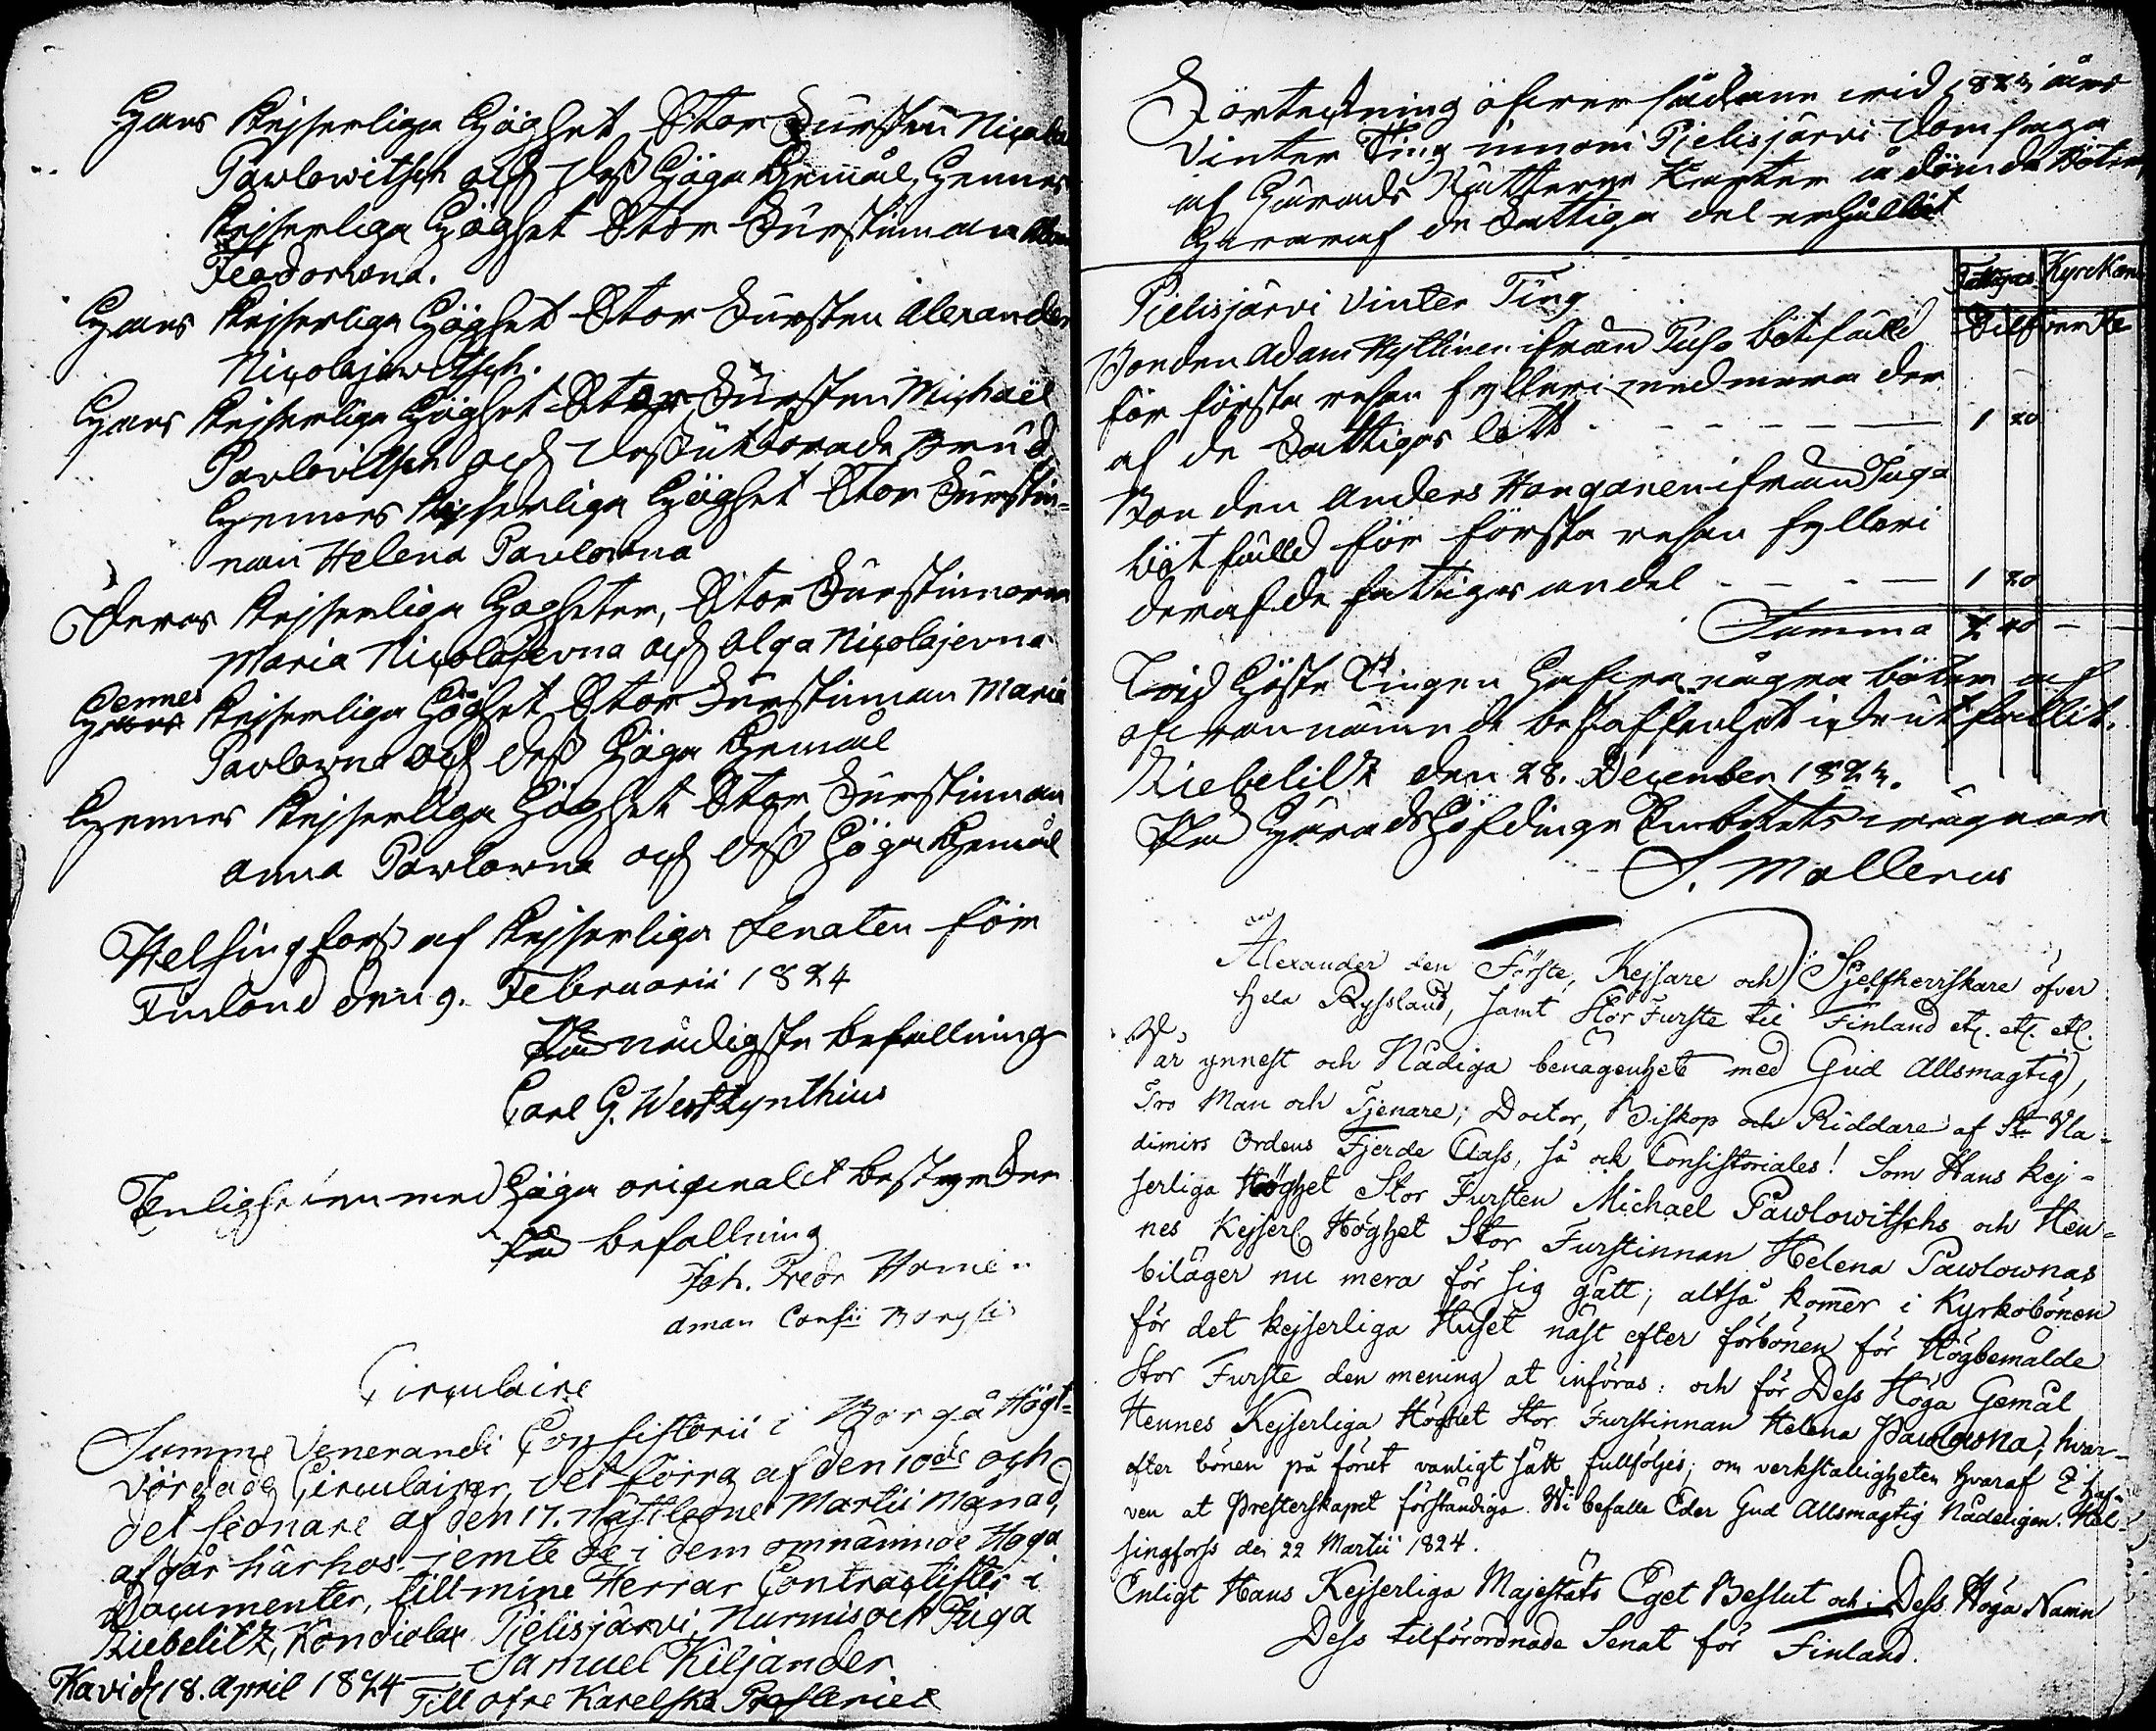 Hans Kejserliga Höghet Stor Fursten Nicolai
Pawlowitsch och Dess Höga Gemål, Hennes
Kejserliga Höghet Stor Furstinnan
Feodorowna.
Hans Kejserliga Höghet Stor Fursten Alexander
Nicolajewitsch.
Hans Kejserliga Höghet Stor Fursten Michaël
Pavlovitsch och Dess utkorade Brud
Hennes Kejserliga Höghet Stor Furstin=
nan Helena Pavlovna
Deras Kejserliga Högheter, Stor Furstinnorna
Maria Nicolajevna och Olga Nicolajevna
Hennes Kejserliga Höghet Stor Furstinnan Maria
Pavlovna och dess Höga Gemål
Hennes Kejserliga Höghet Stor Furstinnan
Anna Pavlovna och dess Höga Gemål
Helsingfors af Kejserliga Senaten för
Finland den 9. Februarii 1824
På nådigste befallning
Carl G. Westzynthius
Enligheten med Höga originalet bestyrker
På befallning
Joh. Fredr
aman Consii
Circulaire
Summe Venerandi Consistorii i Borgå Högt=
vördade Circulairer, det förra af den 10de och
det sednare af den 17. nästledne Martii Månad,
afgår härhos jemte de i dem omnämnde Höga
Documenter, till mine Herrar Contractister i
Liebelitz, Kondiolax Pielisjärvi, Nurmis och Juga
Kavi d. 18. April 1824 — Samuel Kiljander.
Till öfre Karelska Prosteriet
Förteckning öfver sådane vid 1823 års
Vinter Ting innom Pielisjärvi Domsaga
af Härads Rätterne Krafter ådömda Böter,
Hvaraf de Fattiga del erhållit
Fattigas Kyrckan
Pielisjärvi Vinter Ting
Silfver
Bonden Adam Kyllinen ifrån Juga bötfälld
för första resan fylleri med mera der
af de Fattigas lott - - - - - 1 20
Bonden Anders Hangonen ifrån Juga
bötfälld för första resan fylleri
deraf de fattigas andel - - - - 1 20
Summa 2 40 —
Vid Höste Tingen Hafva några böter af
ofvannämnde beskaffenhet icke utfallit.
Liebelitz den 28. December 1823.
På Häradshöfdinge Embetets vägnar
S. Mollerus
Alexander den Förste, Kejsare och Sjelfherrskare öfver
hela Ryssland, samt Stor Furste til Finland etc. etc. etc.
Vår ynnest och Nådiga benägenhet med Gud Allsmägtig,
Tro Man och Tjenare; Doctor, Biskop och Riddare af St. Vla=
dimirs Ordens Fjerde Class, så ock Consistoriales! Som Hans Kej=
serliga Höghet Stor Fursten Michael Pawlowitschs och Hen=
nes Kejserl. Höghet Stor Furstinnan Helena Pawlownas
biläger nu mera för sig gått; altså kommer i Kyrkobönen
för det kejserliga Huset näst efter förbönen för Högbemälde
Stor Furste den mening at införas: och för Dess Höga Gemål
Hennes Kejserliga Höghet Stor Furstinnan Helena Pawlowna, hvar=
efter bönen på förut vanligt sätt fullföljes; om verkställigheten hvaraf E haf=
ven at Presterskapet förständiga. Wi befalle Eder Gud Allsmägtig Nådeligen. Hel=
singfors den 22 Martii 1824.
Enligt Hans Kejserliga Majestäts Eget Beslut och i Dess Höga Namn
Dess tilförordnade Senat för Finland.